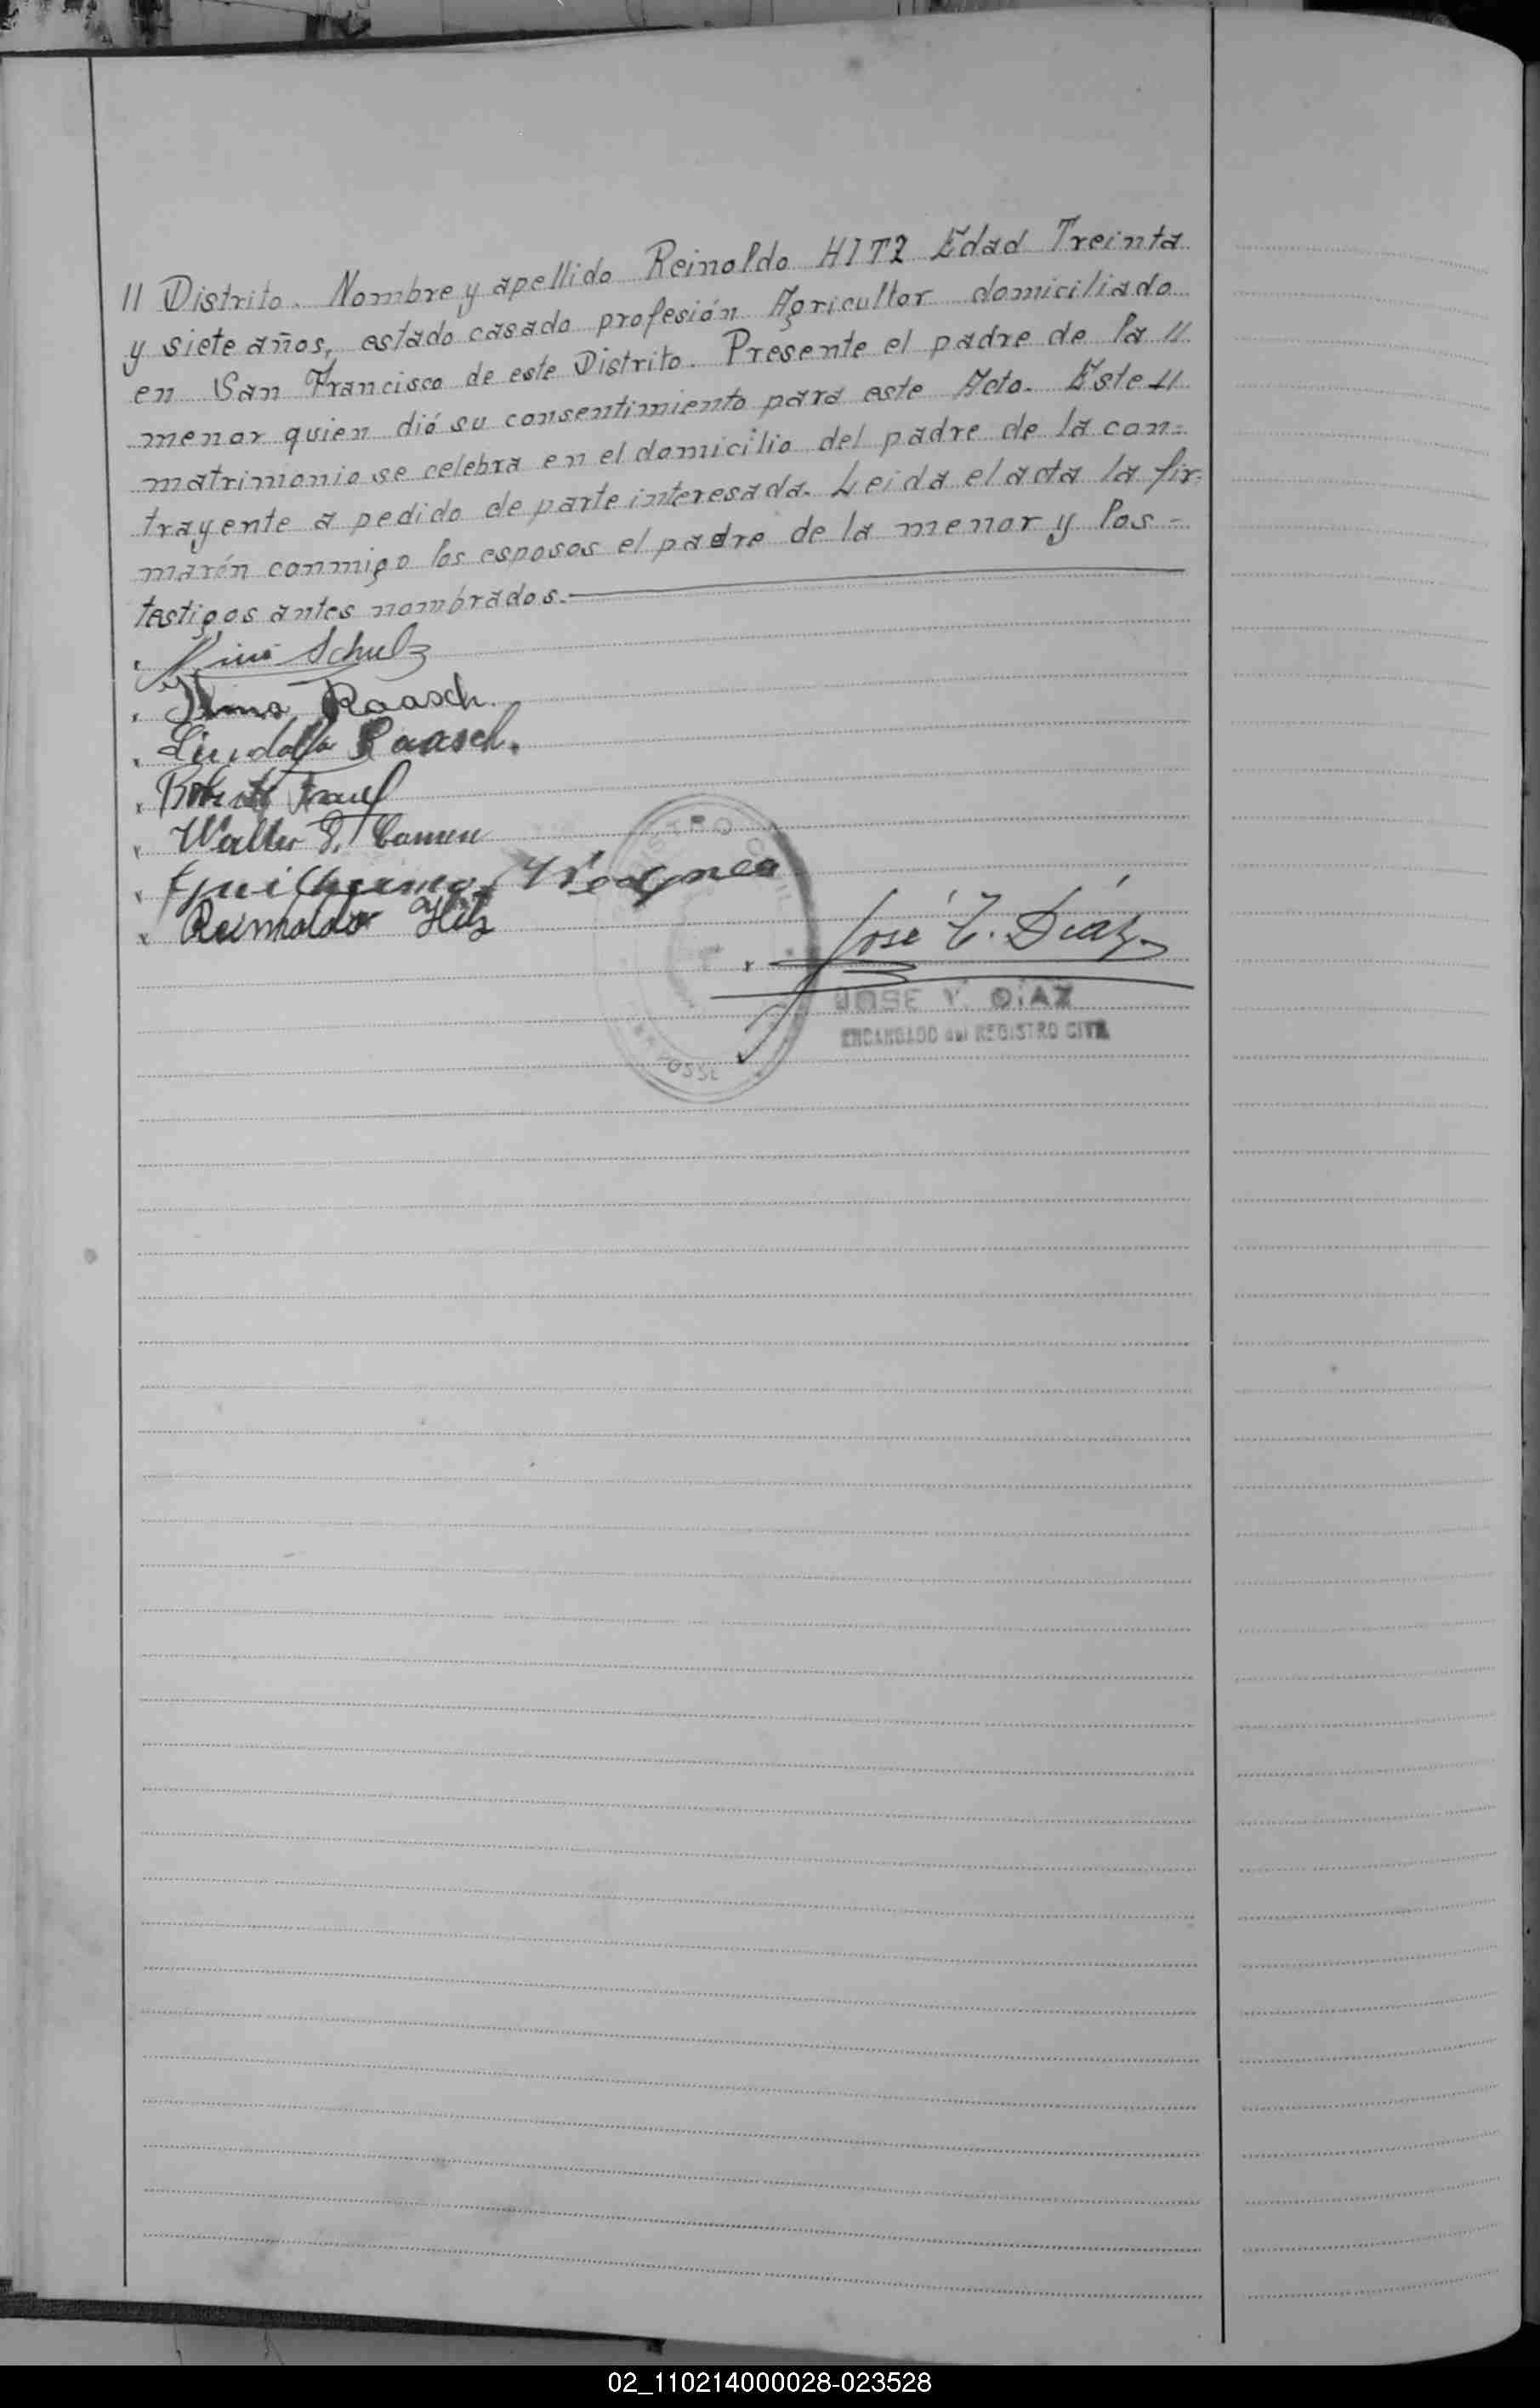 // Distrito. Nombre y apellido Reinoldo HITZ Edad Treinta
y siete años, estado casado profesión Agricultor domiciliado
en San Francisco de este Distrito. Presente el padre de la //
menor quien dió su consentimiento para este Acto. Este //
matrimonio se celebra en el domicilio del padre de la con=
trayente a pedido de parte interesada. Leida el acta la fir=
marón conmigo los esposos el padre de la menor y los -
testigos antes nombrados.
Schulz
Raasch.
Raasch.
Walter
Guilhermo Wagner
Reinholdo Hitz
REGISTRO CIVIL
José Y. Díaz
JOSE Y. DIAZ
ENCARGADO del REGISTRO CIVIL
02_110214000028-023528